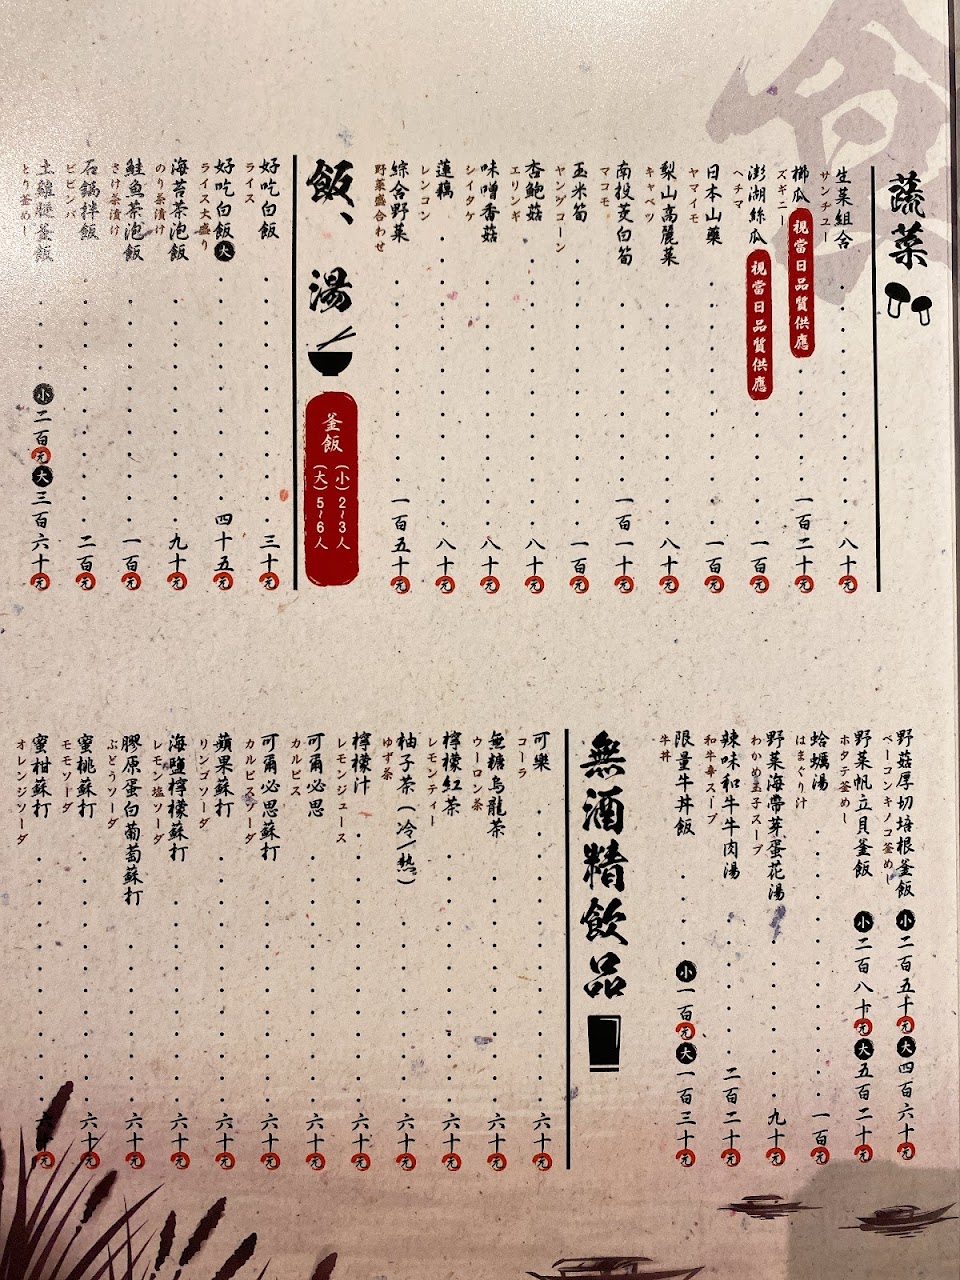 蔬菜
生菜組合 八十元
サンチュー
櫛瓜 視當日品質供應 一百二十元
ズギニー
澎湖絲瓜 視當日品質供應 一百元
ヘチマ
日本山藥 一百元
ヤマイモ
梨山高麗菜 八十元
キャベツ
南投茭白筍 一百一十元
マコモ
玉米筍 一百元
ヤングコーン
杏鮑菇 八十元
エリンギ
味噌香菇 八十元
シイタケ
蓮藕 八十元
レンコン
綜合野菜 一百五十元
野菜盛合わせ
飯、湯
釜飯
(小)2~3人
(大)5~6人
好吃白飯 三十元
ライス
好吃白飯大 四十五元
ライス大盛り
海苔茶泡飯 九十元
のり茶漬け
鮭魚茶泡飯 一百元
さけ茶漬け
石鍋拌飯 二百元
ビビンバ
土雞腿釜飯 小二百元大三百六十元
とり釜めし
野菇厚切培根釜飯 小二百五十元大四百六十元
ベーコンキノコ釜めし
野菜帆立貝釜飯 小二百八十元大五百二十元
ホタテ釜めし
蛤蠣湯 一百元
はまぐり汁
野菜海帶芽蛋花湯 九十元
わかめ玉子スープ
辣味和牛牛肉湯 二百二十元
和牛辛スープ
限量牛丼飯 小一百元大一百三十元
牛丼
無酒精飲品
可樂 六十元
コーラ
無糖烏龍茶 六十元
ウーロン茶
檸檬紅茶 六十元
レモンティー
柚子茶(冷/熱) 六十元
ゆず茶
檸檬汁 六十元
レモンジュース
可爾必思 六十元
カルピス
可爾必思蘇打 六十元
カルピスソーダ
蘋果蘇打 六十元
リンゴソーダ
海鹽檸檬蘇打 六十元
レモン塩ソーダ
膠原蛋白葡萄蘇打 六十元
ぶどうソーダ
蜜桃蘇打 六十元
モモソーダ
蜜柑蘇打 六十元
オレンジソーダ